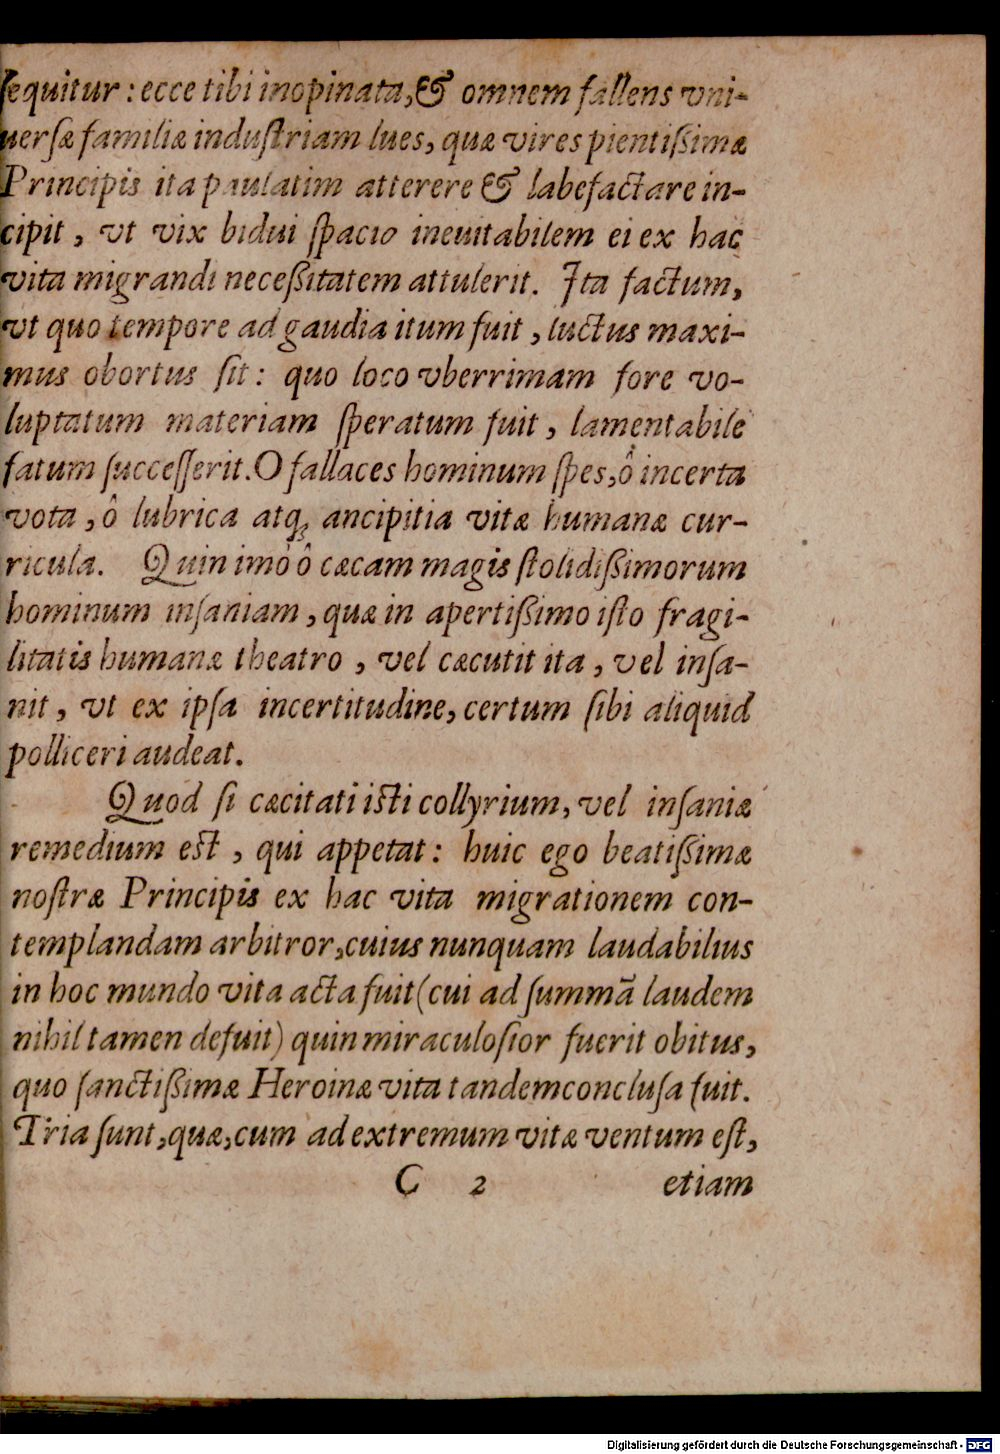 ſequitur : ecce tibi inopinata, & omnem fallens vni-
uerſæ familiæ induſtriam lues, quæ vires pientiſſimæ
Principis ita paulatim atterere & labefactare in-
cipit, vt vix bidui ſpacio ineuitabilem ei ex hac
vita migrandi neceſſitatem attulerit. Ita factum,
vt quo tempore ad gaudia itum fuit, luctus maxi-
mus obortus ſit: quo loco vberrimam fore vo-
luptatum materiam ſperatum fuit, lamentabile
fatum ſucceſſerit. O fallaces hominum ſpes, ô incerta
vota, ô lubrica atq; ancipitia vitæ humanæ cur-
ricula. Quin imò ô cæcam magis ſtolidiſſimorum
hominum inſaniam, quæ in apertiſſimo iſto fragi-
litatis humanæ theatro, vel cæcutit ita, vel inſa-
nit, vt ex ipſa incertitudine, certum ſibi aliquid
polliceri audeat.
Quod ſi cæcitati iſti collyrium, vel inſaniæ
remedium eſt, qui appetat: huic ego beatiſſimæ
noſtræ Principis ex hac vita migrationem con-
templandam arbitror, cuius nunquam laudabilius
in hoc mundo vita acta fuit (cui ad ſummã laudem
nihil tamen defuit) quin miraculoſior fuerit obitus,
quo ſanctiſſimæ Heroinæ vita tandem concluſa fuit.
Tria ſunt, quæ, cum ad extremum vitæ ventum eſt,
C 2 etiam
Digitalisierung gefördert durch die Deutsche Forschungsgemeinschaft - DFG